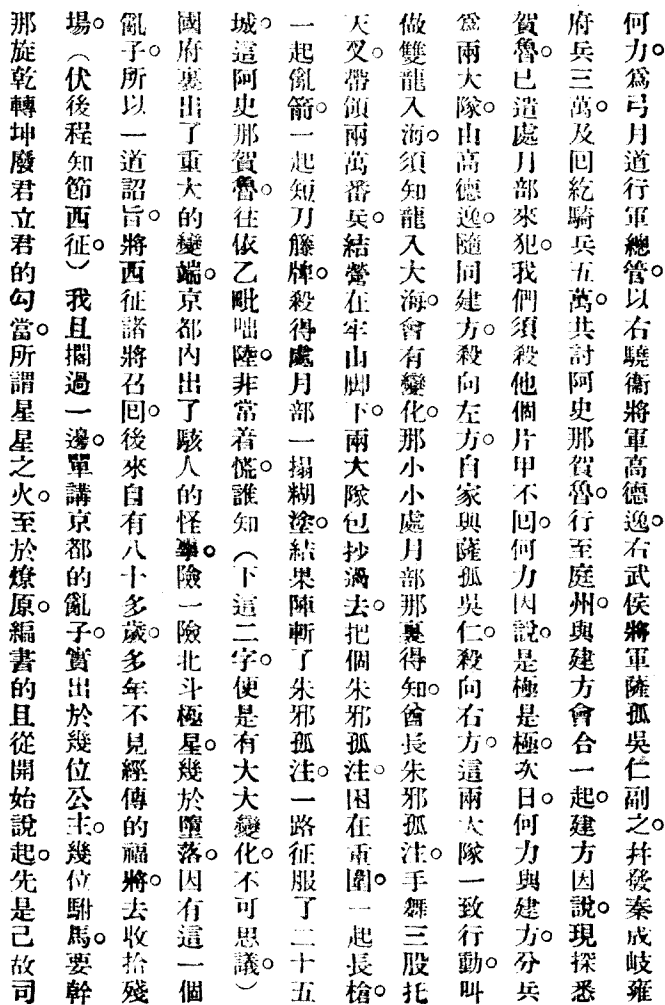 何力。爲弓月道行軍總管。以右驍衞將軍高德逸。右武侯將軍薩孤吳仁副之。幷發秦成岐雍
府兵三萬。及回紇騎兵五萬。共討阿史那賀魯。行至庭州。與建方會合一起。建方因說。現探悉
賀魯已遣處月部來犯。我們須殺他個片甲不回。何力因說。是極是極。次日。何力與建方。分兵
爲兩大隊。由高德逸。隨同建方。殺向左方。自家與薩孤吳仁。殺向右方。這兩大隊一致行動。叫
做雙龍入海。須知龍入大海。會有變化。那小小處月部。那裏得知。酋長朱邪孤注。手舞三股托
天叉。帶領兩萬番兵。結營在牢山脚下。兩大隊包抄過去。把個朱邪孤注。困在重圍。一起長槍。
一起亂箭。一起短刀籐牌。殺得處月部一搨糊塗。結果陣斬了朱邪孤注。一路征服了二十五
城。這阿史那賀魯。往依乙毗咄陸。非常着慌。誰知（下這二字。便是有大大變化。不可思議）
國府裏出了重大的變端。京都內出了駭人的怪舉。險一險北斗極星。幾於墮落。因有這一個
亂子。所以一道詔旨。將西征諸將召回。後來自有八十多歲。多年不見經傳的福將。去收拾殘
場。（伏後程知節西征）我且擱過一邊。單講京都的亂子。實出於幾位公主。幾位駙馬。要幹
那旋乾轉坤廢君立君的勾當。所謂星星之火。至於燎原。編書的且從開始說起。先是已故司